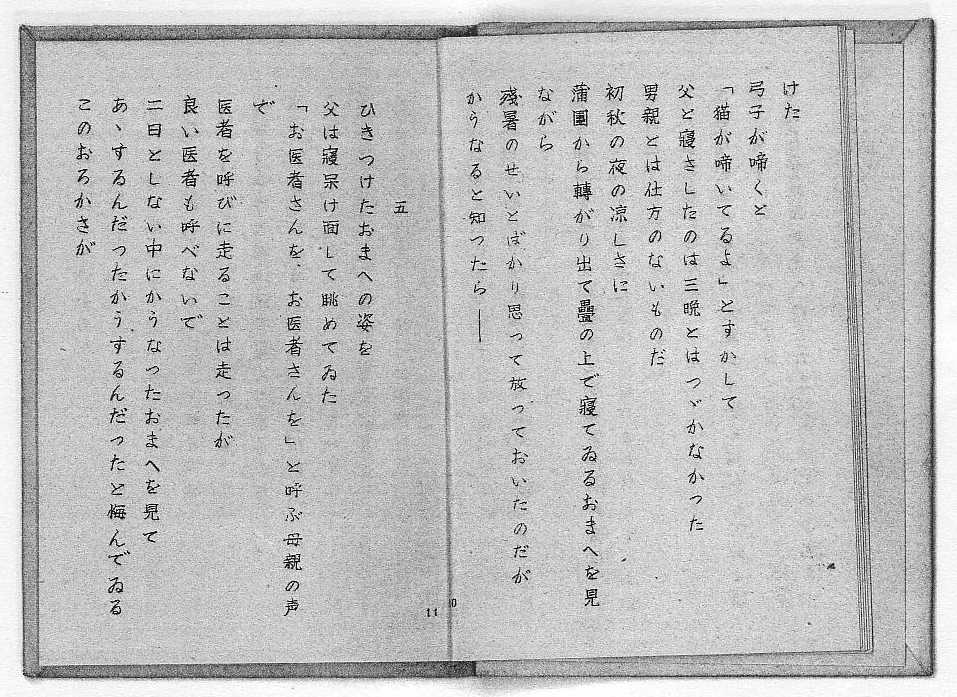 けた
弓子が啼くと
「猫が啼いてるよ」とすかして
父と寝さしたのは三晩とはつゞかなかった
男親とは仕方のないものだ
初秋の夜の凉しさに
蒲團から轉がり出て疊の上で寝てゐるおまへを見
ながら
残暑のせいとばかり思って放っておいたのだが
かうなると知つたら――
10
五
ひきつけたおまへの姿を
父は寝呆け面して眺めてゐた
「お医者さんを、お医者さんを」と呼ぶ母親の声
で
医者を呼びに走ることは走ったが
良い医者も呼べないで
二日としない中にかうなったおまへを見て
あゝするんだったかうするんだったと悔んでゐる
このおろかさが
11